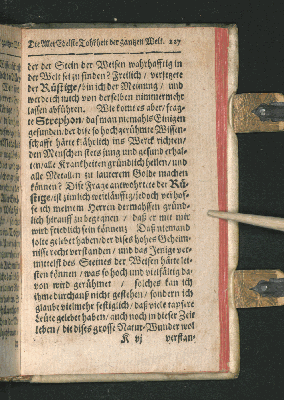 Die Aller Edelste Tohrheit der gantzen Welt. 227
der der Stein der Weisen wahrhafftig in
der Welt sei zu finden? Freilich / versetzete
der Rüstige / bin ich der Meinung / und
werde ich mich von derselben nimmermehr
lassen abführen. Wie komt es aber / frag-
te Strephon / daß man niemahls Einigen
gefunden / der dise so hoch gerühmte Wissen-
schafft hätte kähnlich ins Werck richten /
den Menschen stets jung und gesund erhal-
ten / alle Krankheiten gründlich heilen / und
alle Metallen zu lauterem Golde machen
können? Dise Frage antwohrtete der Rü-
stige / ist zimlich weitläufftig / jedoch verhof-
fe ich meinem Herren dermahssen gründ-
lich hierauff zu begegnen / daß er mit mir
wird friedlich sein können. Daß niemand
solte gelebet haben / der dises hohes Geheim-
nisse recht verstanden / und das Jenige ver-
mittelst des Steins der Weisen hätte lei-
sten können / was so hoch und vielfältig da-
von wird gerühmet / solches kan ich
ihme durchauß nicht gestehen / sondern ich
glaube vielmehr festiglich / daß viele tapfere
Leute gelebet haben / auch noch in dieser Zeit
leben / die dises grosse Natur-Wunder wol
K vj verstan-